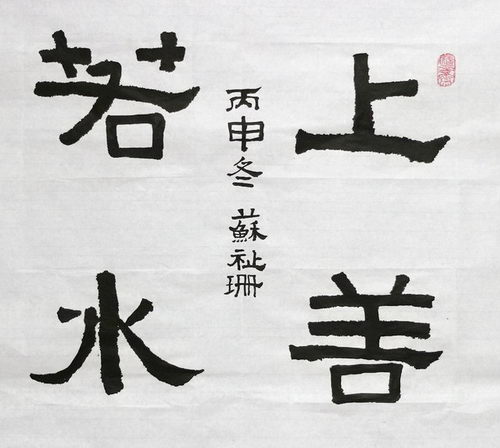 上善
若水
丙申冬 蘇祉珊